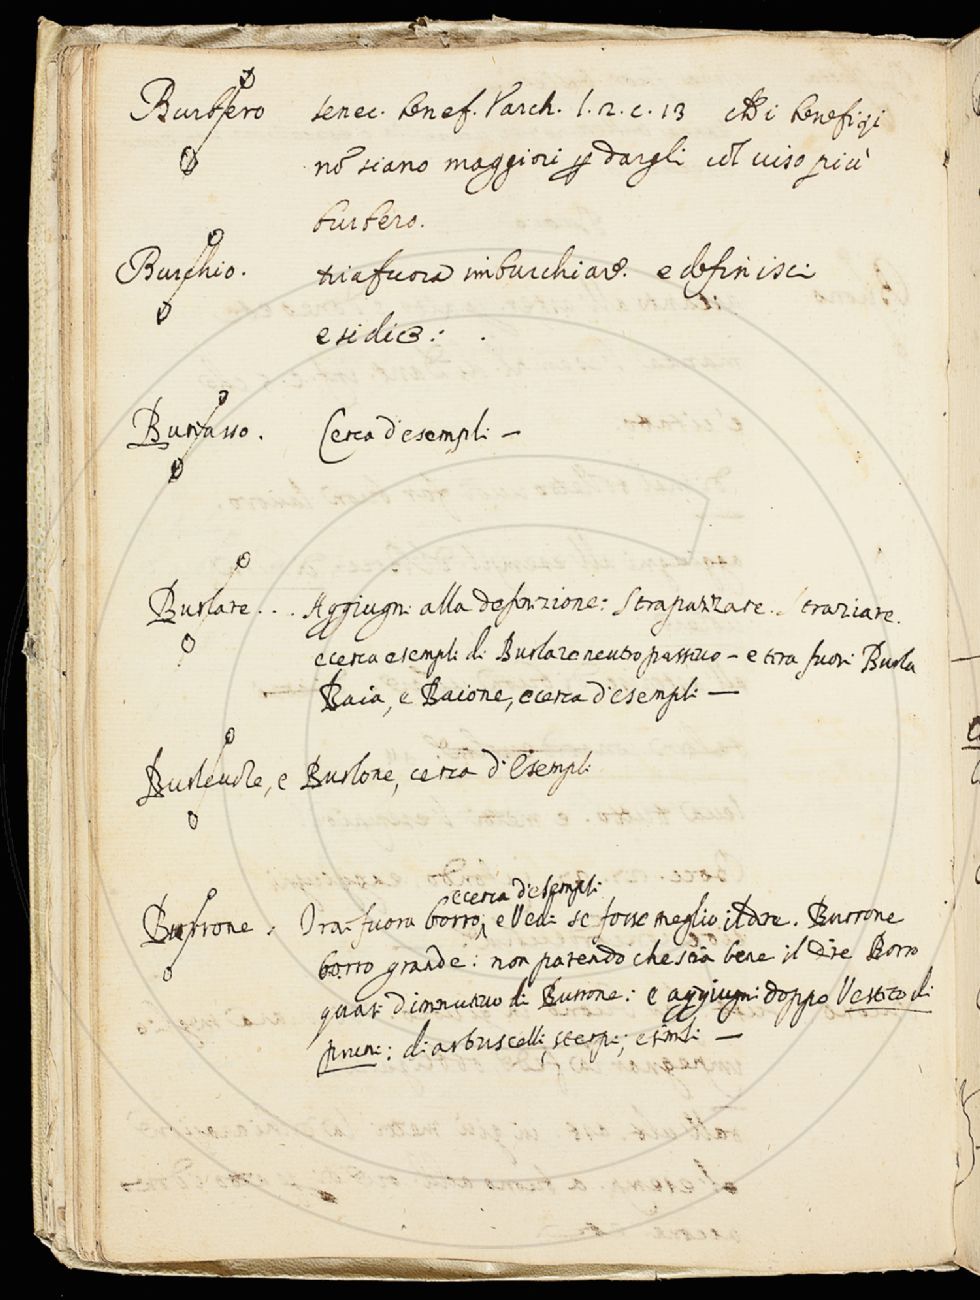 Burbero senec. benef. Varch. l. 2. c. 13 ch̃ i benefizi
nõ siano maggiori ꝑ dargli cõl uiso più
burbero.
Burchio. tira fuora imburchiare. e definisci
e si dice:
Burbasso. Cerca d'esempli —
Burlare... Aggiugni alla definizione: Strapazzare. Straziare.
e cerca esempli di Burlare neutro passiuo — e tira fuori Burla
Baia, e Baione, e cerca d'esempli —
Burleuole, e Burlone, cerca d'Esempli
e cerca d'esempli
Burrone. Tira fuora borro, e Vedi se fosse meglio il dare. Burrone
borro grande: non parendo che stia bene il dire Borro
quasi diminutiuo di Burrone: e aggiugni doppo Vestito di
pruni: di arbuscelli, sterpi, e simili —